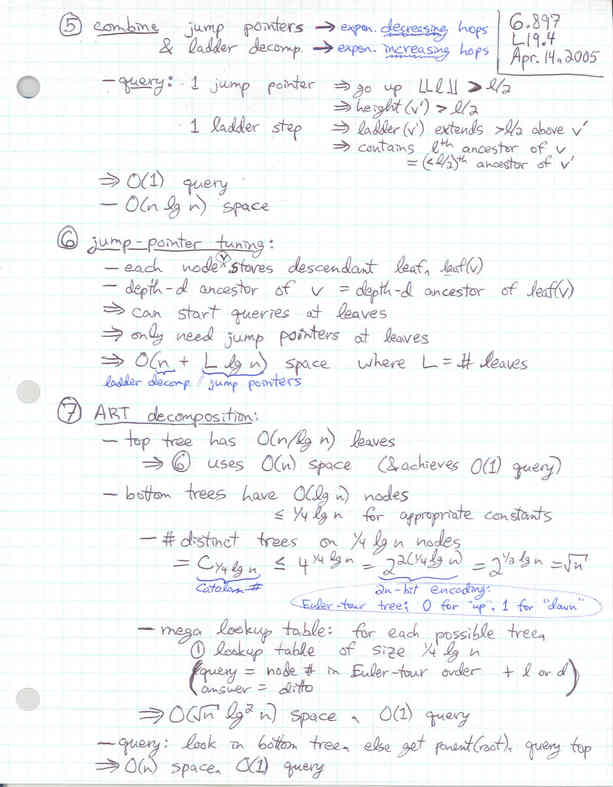 6.897
L19.4
Apr. 14, 2005
⑤ combine jump pointers → expon. decreasing hops
& ladder decomp. → expon. increasing hops
— query: 1 jump pointer ⇒ go up ⌊⌊l⌋⌋ > l/2
⇒ height(v') > l/2
1 ladder step ⇒ ladder(v') extends > l/2 above v'
⇒ contains lth ancestor of v
= (< l/2)th ancestor of v'
⇒ O(1) query
— O(n lg n) space
⑥ jump-pointer tuning:
— each node v stores descendant leaf, leaf(v)
— depth-d ancestor of v = depth-d ancestor of leaf(v)
⇒ can start queries at leaves
⇒ only need jump pointers at leaves
⇒ O(n + L lg n) space where L = # leaves
ladder decomp. jump pointers
⑦ ART decomposition:
— top tree has O(n/lg n) leaves
⇒ ⑥ uses O(n) space (& achieves O(1) query)
— bottom trees have O(lg n) nodes
≤ 1/4 lg n for appropriate constants
— # distinct trees on 1/4 lg n nodes
= C_{1/4 lg n} ≤ 4^{1/4 lg n} = 2^{2(1/4 lg n)} = 2^{1/2 lg n} = √n
Catalan # 2n-bit encoding:
Euler-tour tree; 0 for "up", 1 for "down"
— mega lookup table: for each possible tree,
① lookup table of size 1/4 lg n
(query = node # in Euler-tour order + l or d
answer = ditto)
⇒ O(√n lg² n) space, O(1) query
— query: look in bottom tree, else get parent(root), query top
⇒ O(n) space, O(1) query